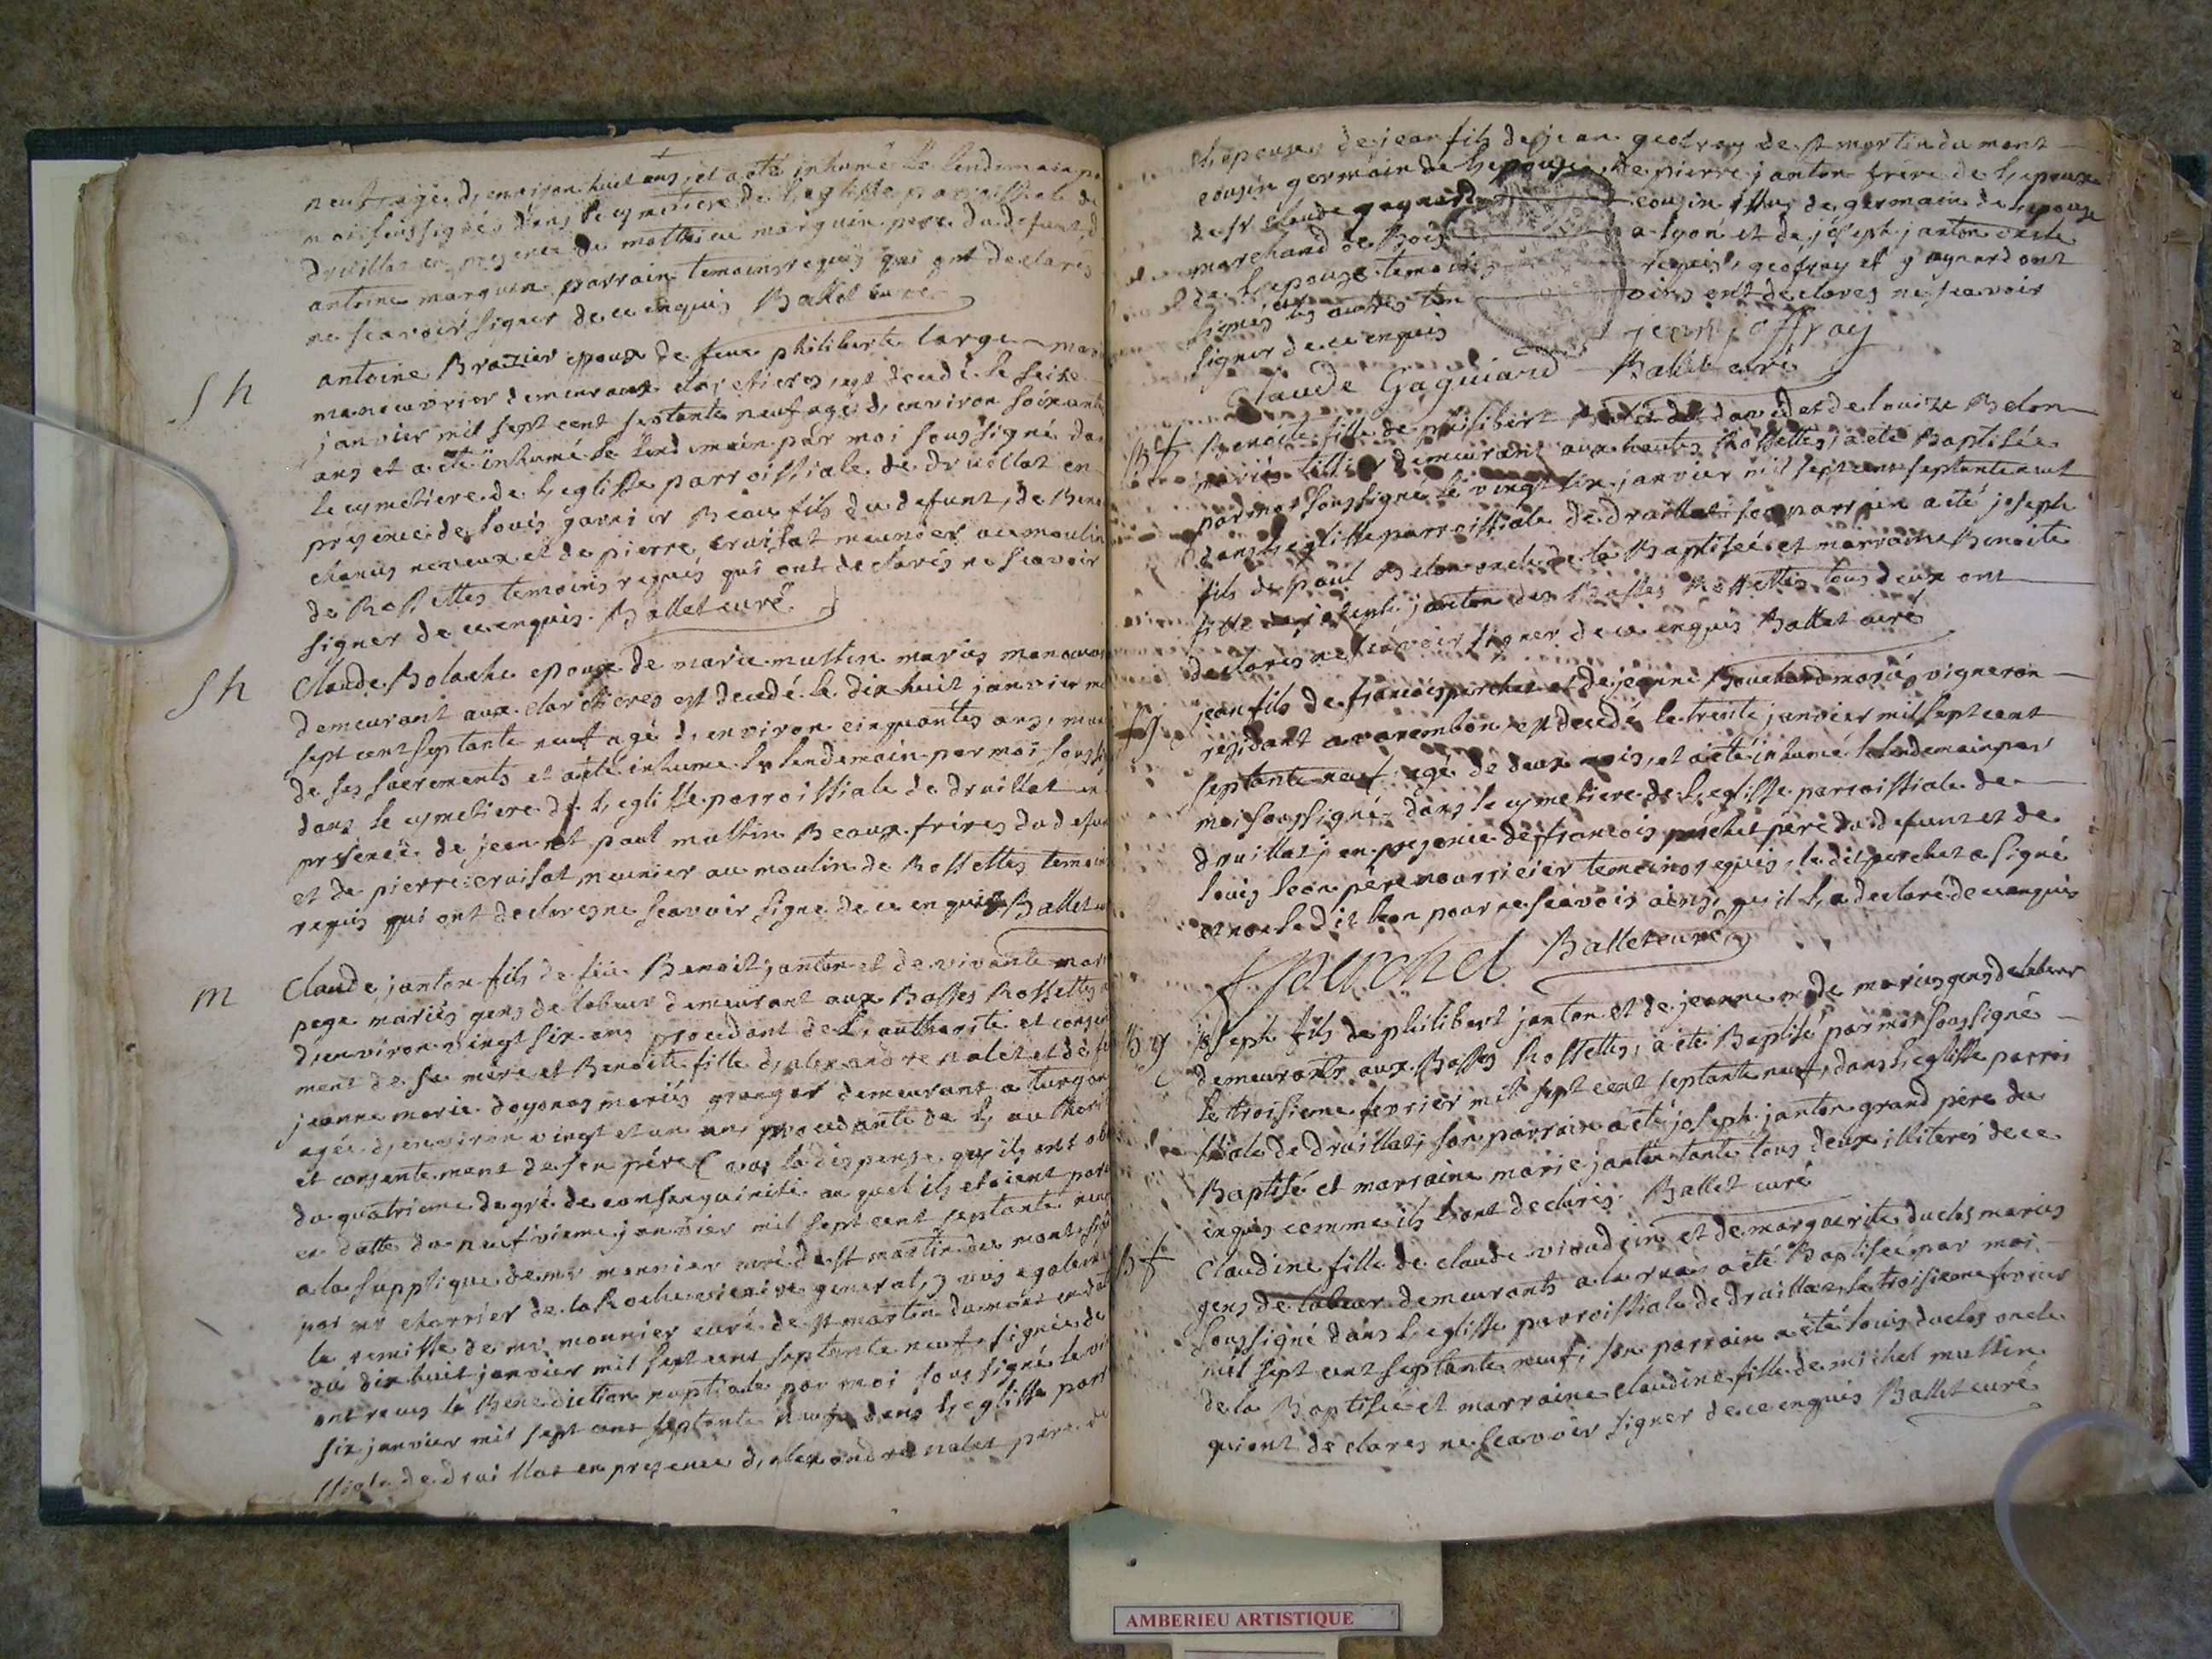 neuf agé d'environ huit ans, et a été inhumé le lendemain par
moi soussigné dans le cymetiere de l'eglisse parroissiale de
druillat en presence de matthieu marguin pere du defunt, d
antoine marguin parrain temoins requis qui ont declarés
ne scavoir signer de ce enquis Ballet curé
S h
antoine Brazier epoux de feue philiberte large
maneuvrier demeurant aux clarctieres, est decedé le seize
janvier mil sept cent septante neuf agé d'environ soixante
ans et a été inhumé le lendemain par moi soussigné dans
le cymetiere de l'eglisse parroissiale de druillat en
presence de louis garnier Beau fils du defunt, de Benoit
chanus neveux et de pierre cruisat meunier au moulin
de Rossettes temoins requis qui ont declarés ne scavoir
signer de ce enquis. Ballet curé
S h
Claude Bolache epoux de marie mustin mariés manouvrier
demeurant aux clarctieres est decedé le dix huit janvier mil
sept cent septante neuf agé d'environ cinquantes ans, muni
de ses sacrements et a été inhumé le lendemain par moi soussigné
dans le cymetiere de l'eglisse parroissiale de druillat en
presence de jean et paul mustin Beaux freres du defunt
et de pierre cruisat meunier au moulin de Rossettes temoins
requis qui ont declares ne scavoir signe de ce enquis Ballet curé
m
Claude janton fils de feu Benoit janton et de vivante mar
page mariés gens de labeur demeurant aux Basses Rossettes
d'environ vingt six ans procedant de l'authorité et consente
ment de sa mere et Benoite fille d'alexandre nalet et de feu
jeanne marie dogonas mariés granger demeurant a turgon
agée d'environ vingt et un an procedante de l'authorité
et consentement de son père (vu la dispense qu'ils ont ob
du quatrieme degré de consanguinité au quel ils etoient par
en datte du neufvieme janvier mil sept cent septante neuf
a la supplique de mr monnier curé de st martin du mont signé
par mr charrier de la Roche vicaire general, et vus egalement
la remisse de mr monnier curé de st martin du mont en datte
du dix huit janvier mil sept cent septante neuf signée de
ont reçus la Benediction nuptiale par moi soussigné le vingt
six janvier mil sept cent septante neuf dans l'eglisse parr
ssiale de druillat en presence d'alexandre nalet pere de
l'epouse, de jean fils de jean geofray de st martin du mont
cousin germain de l'epouse, de pierre janton frere de l'epoux
de sr claude gaynard cousin issus de germain de l'epouse
marchand de Bois a lyon et de joseph janton oncle
de l'epouse temoins requis, geofray et gaynard ont
signés les autres temoins ont declarés ne scavoir
signer de ce enquis jean joffray
Claude Gaguiard Ballet curé
B f
Benoite fille de philibert david et de louize Belon
mariés tillier demeurant aux hautes Rossettes, a été Baptisée
par moi soussigné le vingt six janvier mil sept cent septante neuf
dans l'eglisse parroissiale de druillat son parrain a été joseph
fils de paul Belon oncle de la Baptisée et marraine Benoite
fille de joseph janton des Basses Rossettes tous deux ont
declarés ne scavoir signer de ce enquis Ballet curé
jean fils de francois perchet et de jeanne Bouchard mariés vigneron
residant a varembon est decedé le trente janvier mil sept cent
septante neuf agé de deux mois, et a été inhumé le lendemain par
moi soussigné dans le cymetiere de l'eglisse parroissiale de
druillat, en presence de francois perchet père du defunt et de
louis leon père nourricier temoins requis, le dit perchet a signé
et non le dit leon pour ne scavoir ainsi qu'il l'a declaré de ce enquis
f parchet Ballet curé
B g
joseph fils de philibert janton et de jeanne mode mariés gens de labeur
demeurants aux Basses Rossettes, a été Baptisé par moi soussigné
le troisieme fevrier mil sept cent septante neuf, dans l'eglisse parroi
ssiale de druillat, son parrain a été joseph janton grand père du
Baptisé et marraine marie janton tante tous deux illiterés de ce
enquis comme ils l'ont declarés. Ballet curé
B f
Claudine fille de claude viaudrin et de marguerite duclos mariés
gens de labeur demeurants a la rua a été Baptisée par moi
soussigné dans l'eglisse parroissiale de druillat le troisieme fevrier
mil sept cent septante neuf, son parrain a été louis duclos oncle
de la Baptisée et marraine claudine fille de michel mustin
qui ont declares ne scavoir signer de ce enquis Ballet curé
AMBERIEU ARTISTIQUE